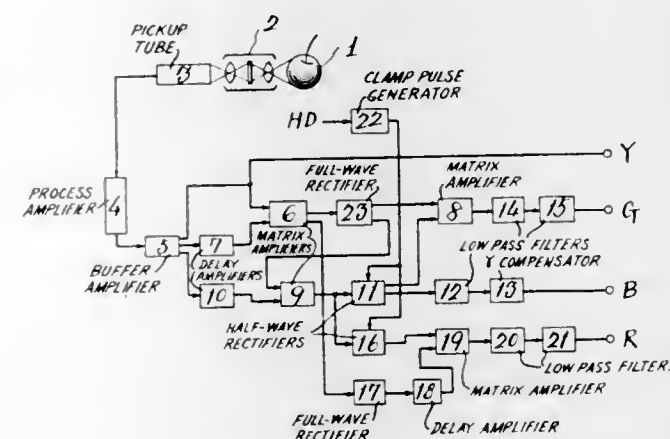 PICKUP
TUBE
2
1
3
CLAMP PULSE
GENERATOR
HD
22
Y
PROCESS
AMPLIFIER
4
FULL-WAVE
RECTIFIER
MATRIX
AMPLIFIER
6
23
8
14
15
G
5
7
BUFFER
AMPLIFIER
MATRIX
AMPLIFIERS
DELAY
AMPLIFIERS
LOW PASS FILTERS
γ COMPENSATOR
10
9
11
12
13
B
HALF-WAVE
RECTIFIERS
16
19
20
21
R
LOW PASS FILTERS
MATRIX AMPLIFIER
17
18
FULL-WAVE
RECTIFIER
DELAY AMPLIFIER